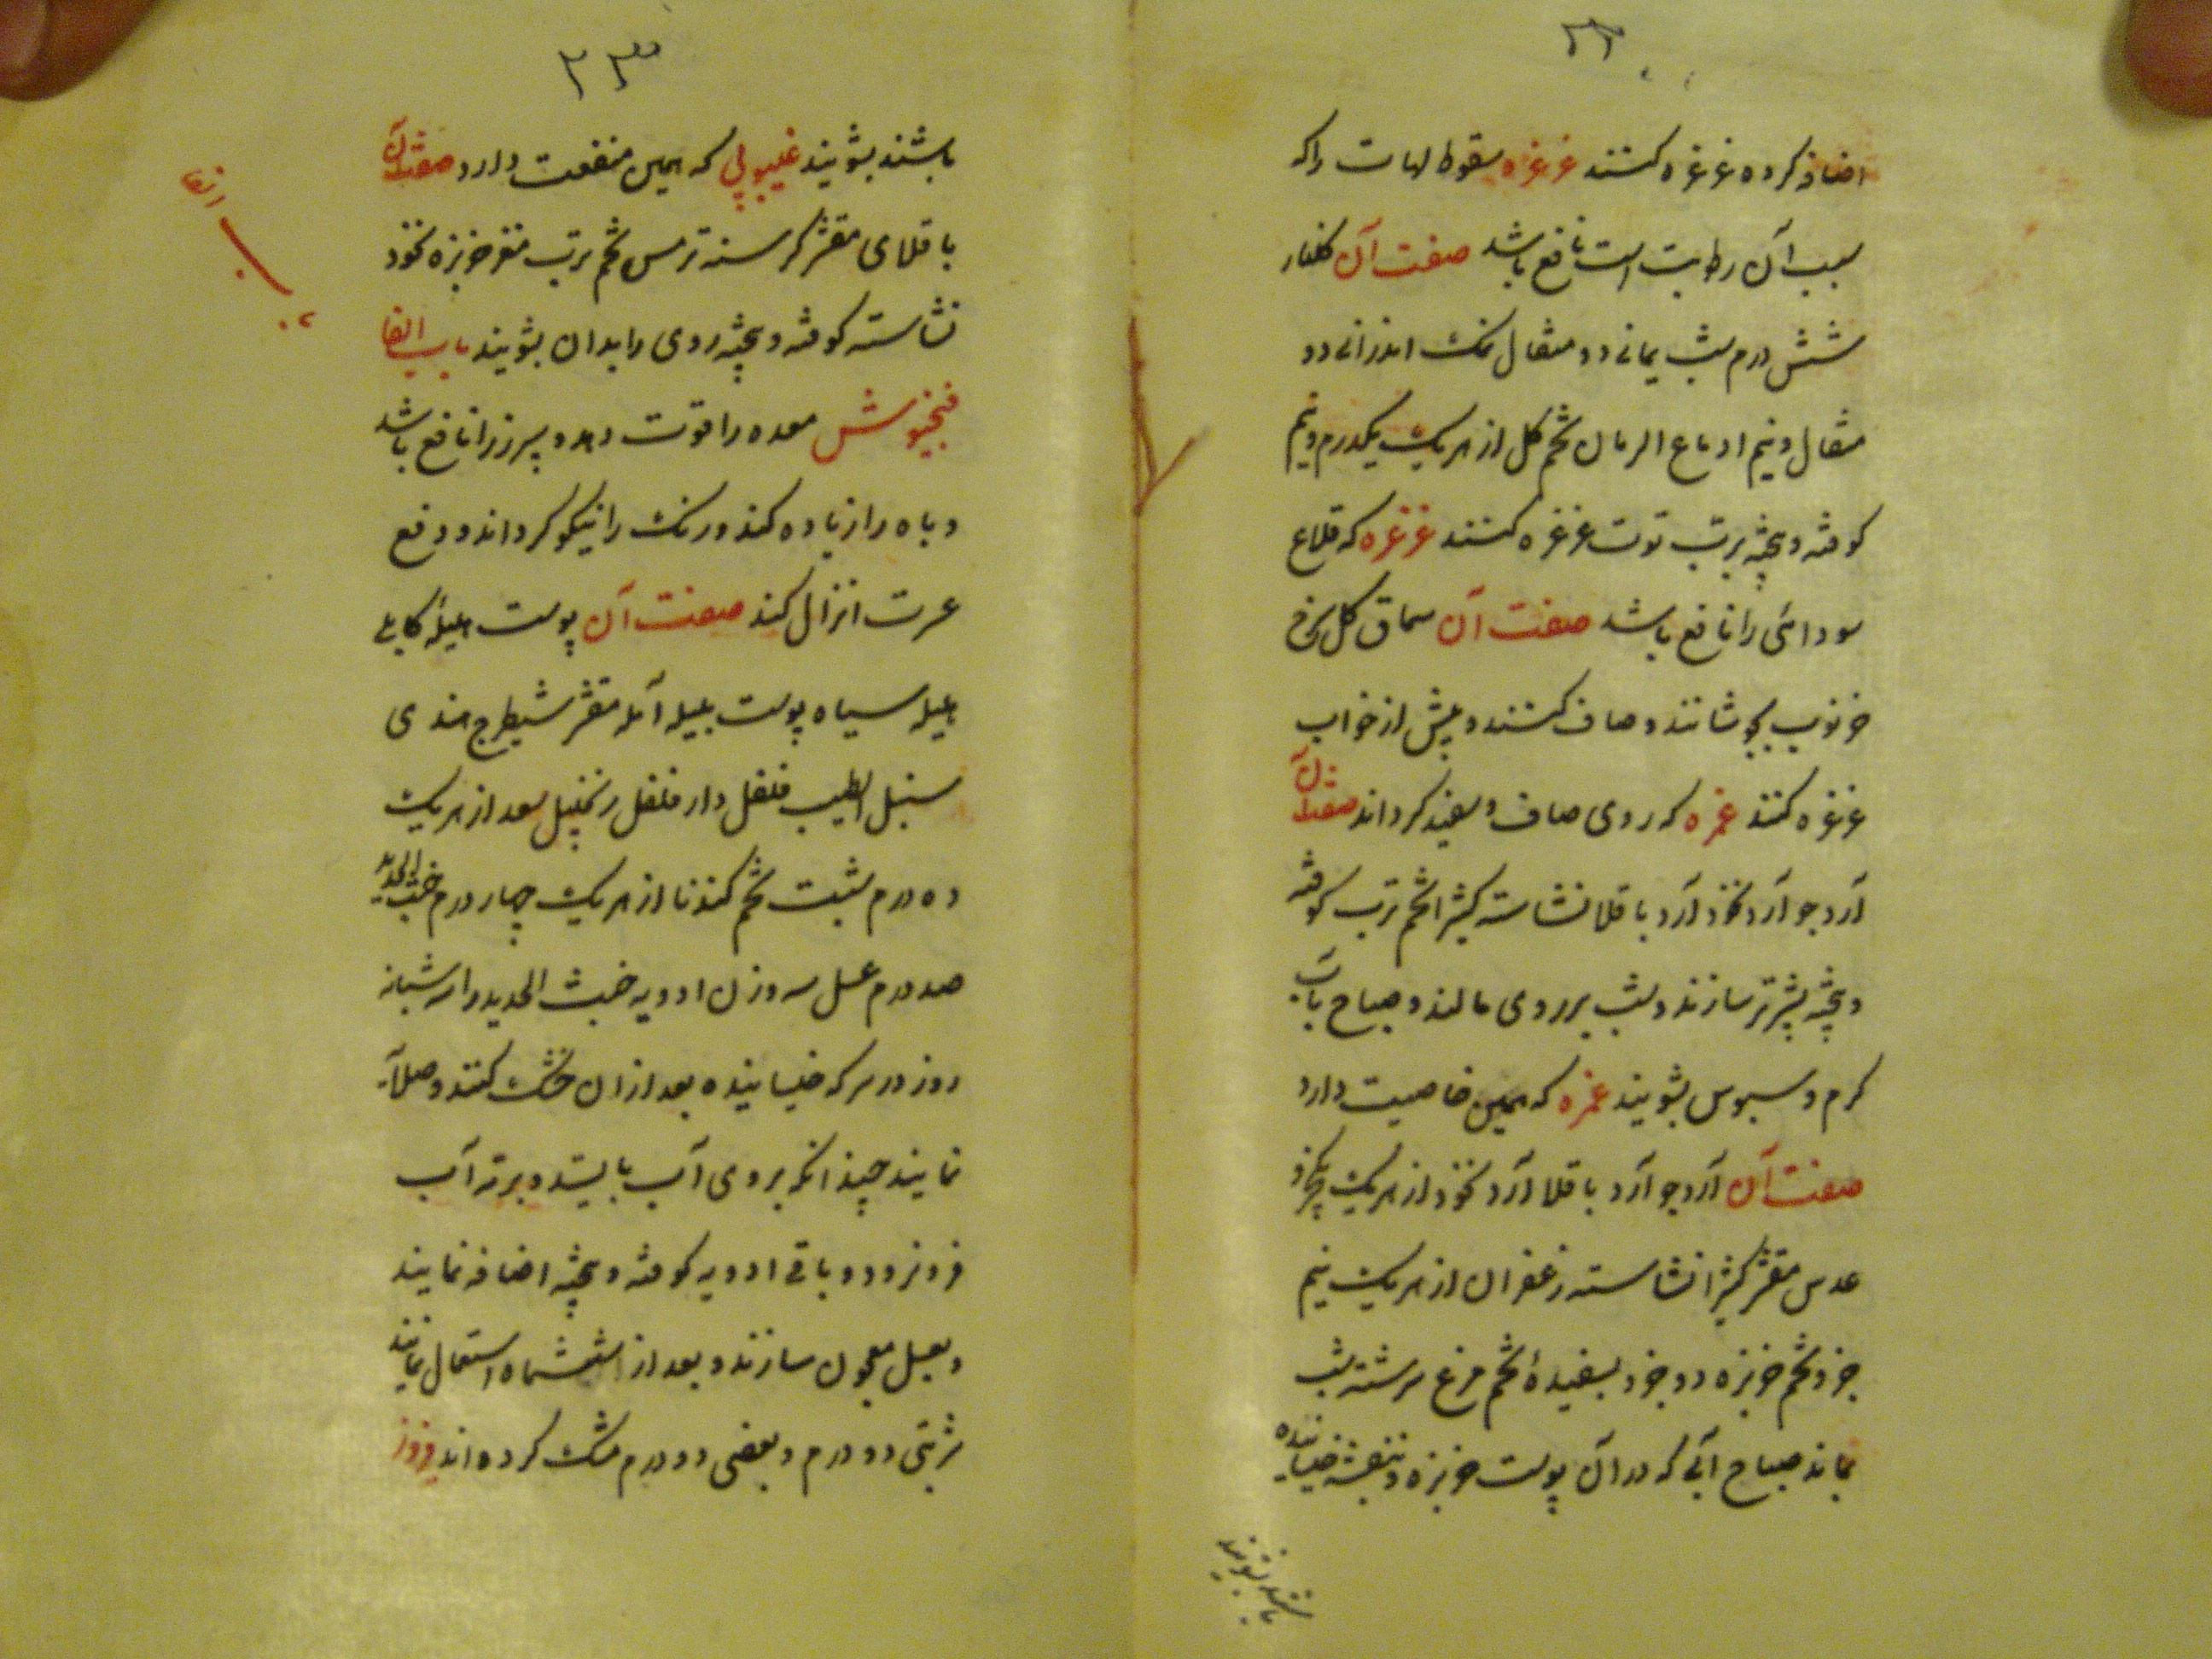 ۲۲
اضافه کرده غرغره کنند غرغره سقوط لهات را که
سبب آن رطوبت است نافع باشد صفت آن گلنار
شش درم شب یمانی دو مثقال نمک اندرانی دو
مثقال و نیم اقماع الرمان تخم گل از هر یک یکدرم و نیم
کوفته و بیخته برب توت غرغره کنند غرغره که قلاع
سودائی را نافع باشد صفت آن سماق گل سرخ
خرنوب بجوشانند و صاف کنند و پیش از خواب
غرغره کنند غمره که روی صاف و سفید کرداند صفت آن
آرد جو آرد نخود آرد باقلا نشاسته کتیرا تخم ترب کوفته
و بیخته بشیر تر سازند و شب بر روی مالند و صباح بآب
کرم و سبوس بشویند غمره که همین خاصیت دارد
صفت آن آرد جو آرد باقلا آرد نخود از هر یک یکجزو
عدس مقشر کتیرا نشاسته زعفران از هر یک نیم
جزو تخم خربزه دو جزو بسفیدهٔ تخم مرغ سرشته شب
بمالند صباح آبی که در آن پوست خربزه و بنفشه خیسانیده
باشند بشویند
۲۳
باشند بشویند که همین منفعت دارد صفت آن
باقلای مقشر کرسنه ترمس تخم ترب مغز خربزه نخود
نشاسته کوفته و بیخته روی را بدان بشویند باب الفا
فنجنوش معده را قوت دهد و سپرز را نافع باشد
و باه را زیاده کند و رنگ را نیکو کرداند و دفع
سرعت انزال کند صفت آن پوست هلیلهٔ کابلی
هلیله سیاه پوست بلیله آمله مقشر شیطرج هندی
سنبل الطیب فلفل دار فلفل زنجبیل سعد از هر یک
ده درم شبت تخم کندنا از هر یک چهار درم خبث الحدید
صد درم عسل سه وزن ادویه خبث الحدید را سه شبانه
روز در سرکه خیسانیده بعد از آن خشک کنند و صلایه
نمایند چندانکه بروی آب بایستد و به ته آب
فرو نرود و باقی ادویه کوفته و بیخته اضافه نمایند
و بعسل معجون سازند و بعد از ششماه استعمال نمایند
شربتی دو درم و بعضی دو درم مشک کرده اند
باب الفا